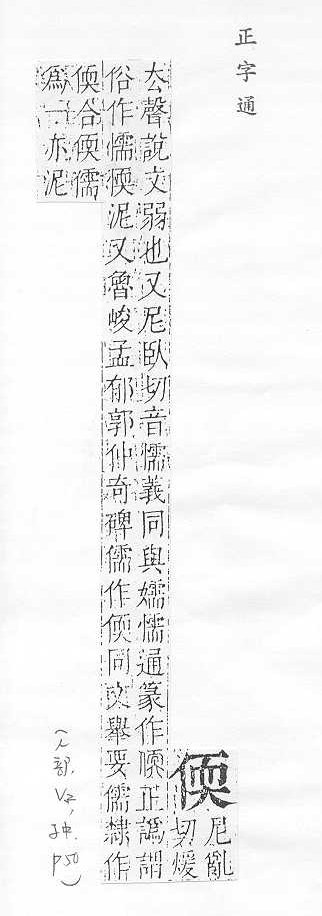 正字通
偄
尼亂
切煖
去聲說文弱也又尼臥切音懦義同與嬬懦通篆作偄正譌謂
俗作懦愞泥又魯峻孟郁郭仲奇碑儒作偄同文舉要儒隸作
偄合偄儒
爲一亦泥
(人部, P50)